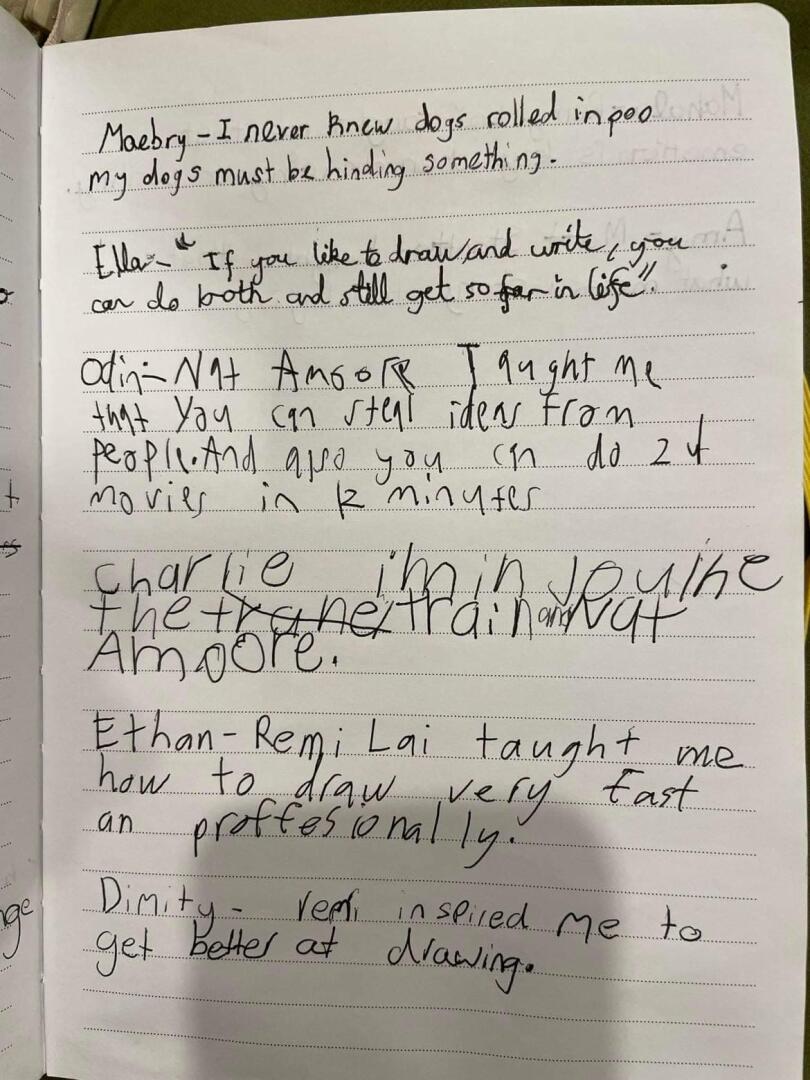 Maebry - I never knew dogs rolled in poo
my dogs must be hinding something.
Ella - " If you like to draw and write, you
can do both and still get so far in life".
Odin - Nat Amoore Taught me
that you can steal ideas from
people. And also you cn do 24
movies in 12 minutes
Charlie i'm in
the trane train and Nat
Amoore.
Ethan - Remi Lai taught me
how to draw very fast
an proffesionally.
Dimity - remi inspired me to
get better at drawing.